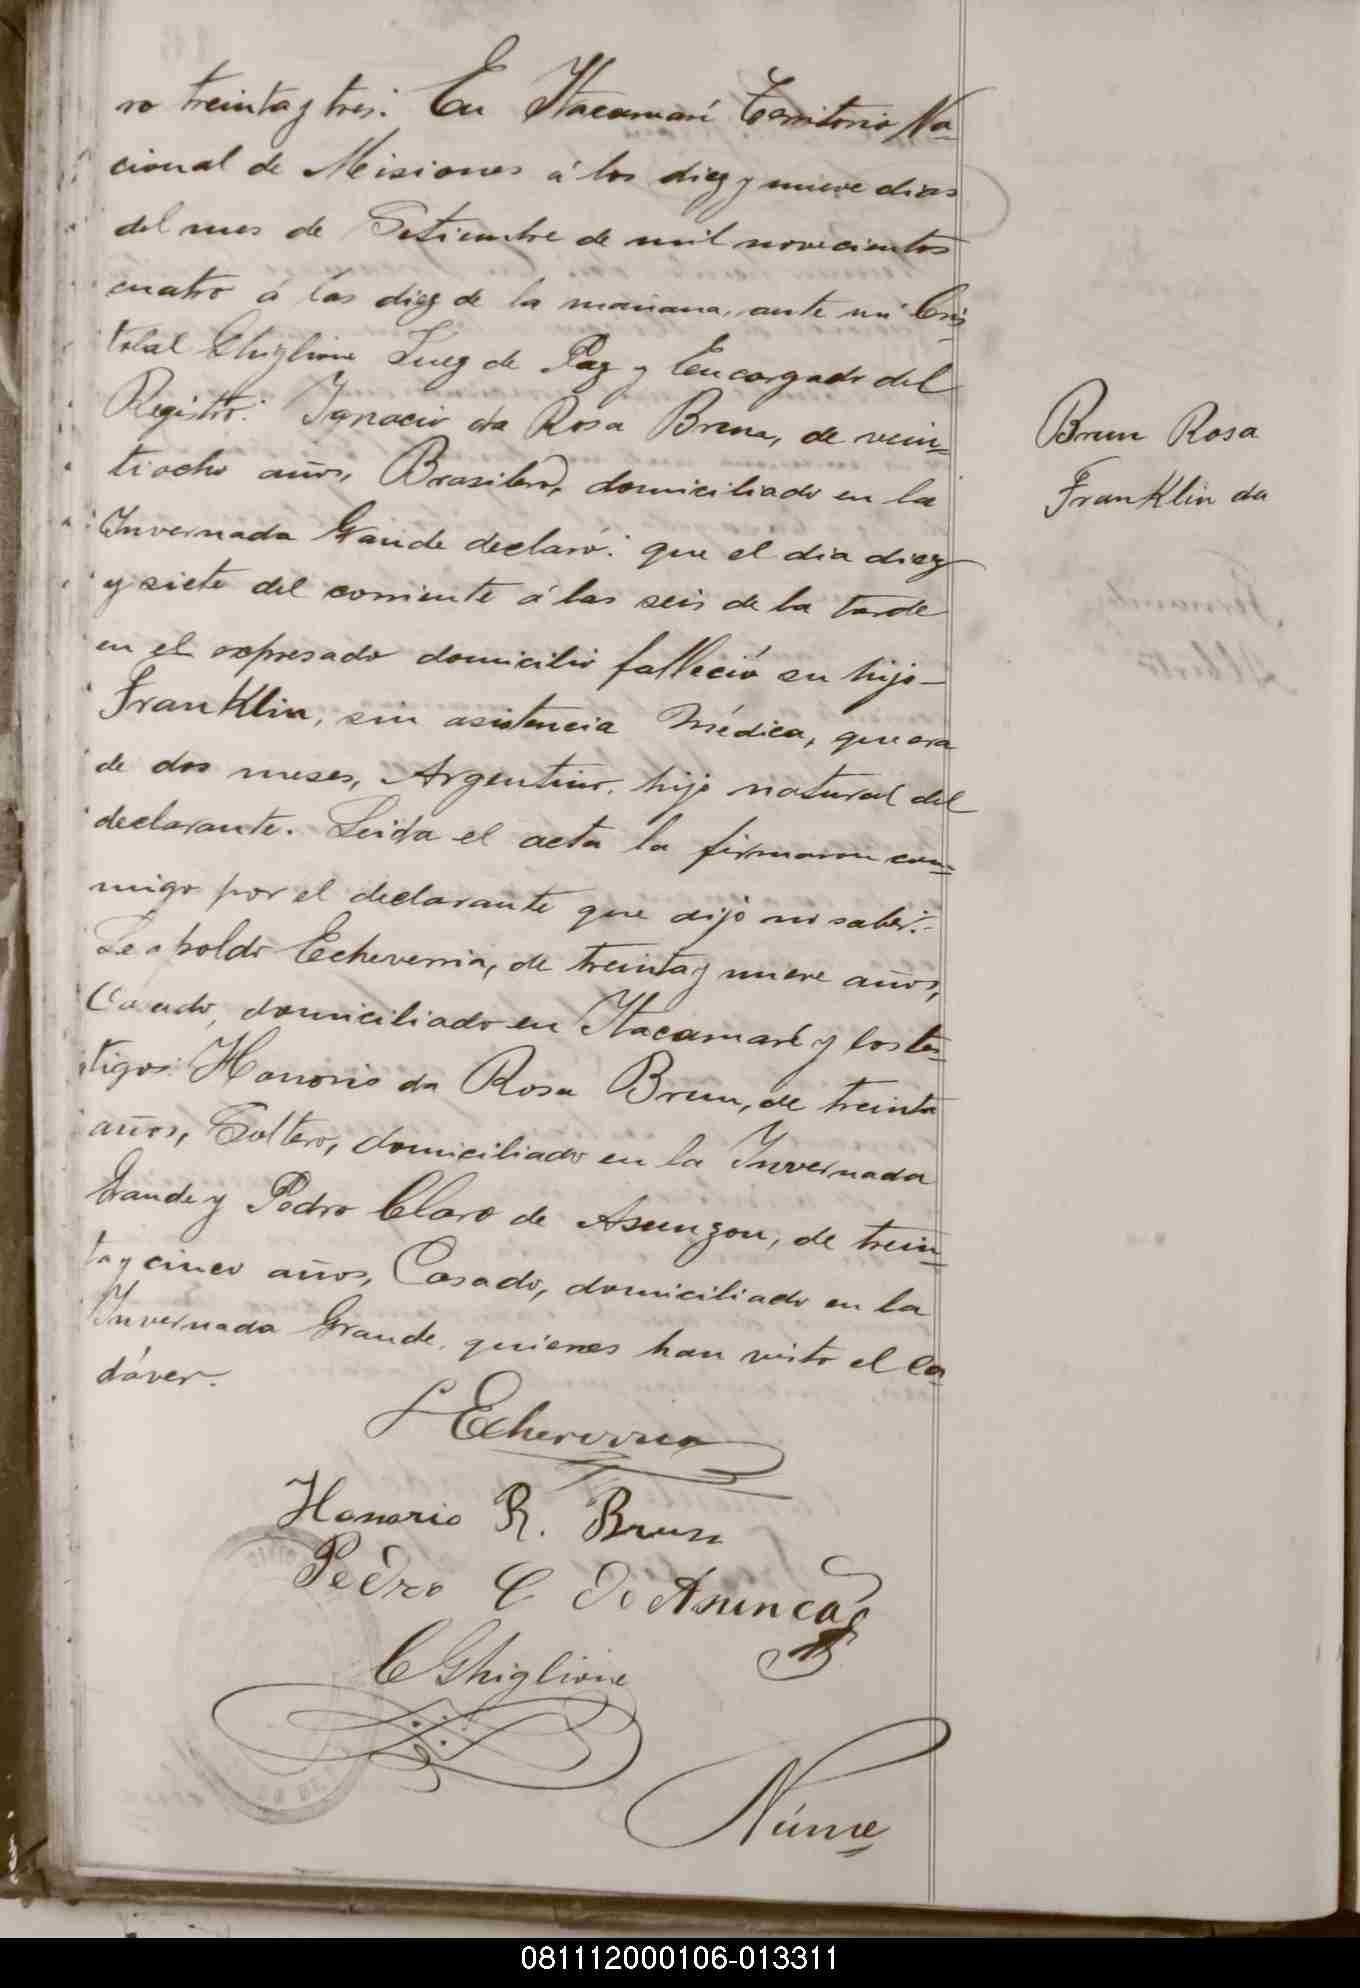 ro treinta y tres: En Itacaruaré Territorio Na=
cional de Misiones á los diez y nueve dias
del mes de Setiembre de mil novecientos
cuatro á las diez de la mañana, ante mi Cris=
tobal Ghiglione Juez de Paz y Encargado del
Registro: Ignacio da Rosa Brum, de vein=
tiocho años, Brasilero, domiciliado en la
Invernada Grande declaró: que el dia diez
y siete del corriente á las seis de la tarde
en el expresado domicilio falleció su hijo
Franklin, sin asistencia Médica, que era
de dos meses, Argentino, hijo natural del
declarante. Leida el acta la firmaron con=
migo por el declarante que dijo no saber:
Leopoldo Echeverria, de treinta y nueve años,
Casado, domiciliado en Itacaruaré y los tes=
tigos: Honorio da Rosa Brum, de treinta
años, Soltero, domiciliado en la Invernada
Grande y Pedro Claro de Asunzon, de trein=
ta y cinco años, Casado, domiciliado en la
Invernada Grande, quienes han visto el ca=
dáver.
L Echeverria
Honorio R. Brum
Pedro C de Asunção
C Ghiglione
Núme=
Brum Rosa
Franklin da
081112000106-013311